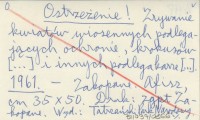 Ostrzeżenie! Zrywanie
kwiatów wiosennych podlega-
jących ochronie, krokusów
[...] i innych podlegające [...]
1961. – Zakopane. Afisz,
cm 35 x 50. Druk: zgPT Za-
kopane. Wyd: Tatrzański